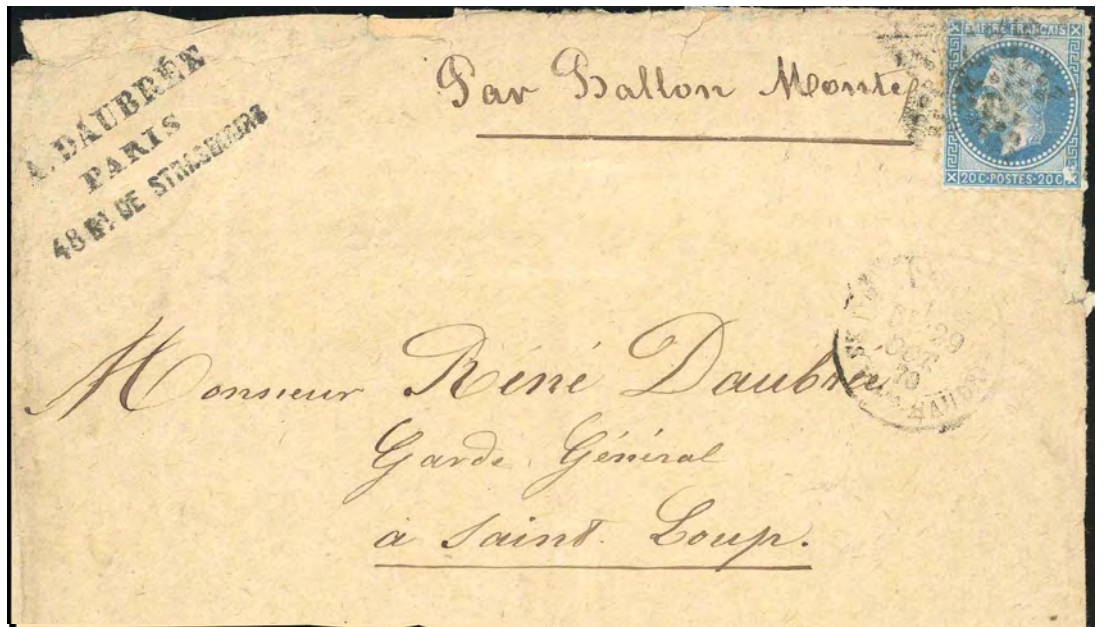 A. DAUBRÉE
PARIS
48 Bd. DE STRASBOURG
Par Ballon Monté
EMPIRE FRANÇAIS
20 C·POSTES·20 C.
29
OCT
70
Monsieur Réné Daubrée
Garde Général
à Saint Loup.